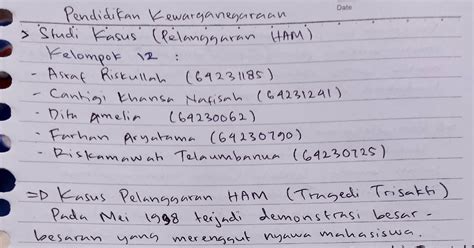 Pendidikan Kewarganegaraan
Date
> Studi Kasus (Pelanggaran HAM)
Kelompok 12 :
- Asraf Riskullah (64231185)
- Cantigi Khansa Nafisah (64231241)
- Dita Amelia (64230062)
- Farhan Aryatama (64230790)
- Riskamawati Telaumbanua (64230725)
=> Kasus Pelanggaran HAM (Tragedi Trisakti)
Pada Mei 1998 terjadi demonstrasi besar-
besaran yang merenggut nyawa mahasiswa.